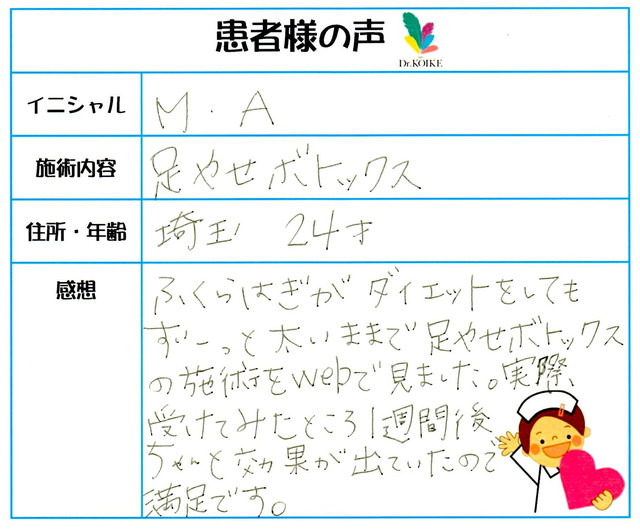 患者様の声
Dr.KOIKE
イニシャル
M・A
施術内容
足やせボトックス
住所・年齢
埼玉 24才
感想
ふくらはぎがダイエットをしても
ずーっと太いままで足やせボトックス
の施術をwebで見ました。実際、
受けてみたところ1週間後
ちゃんと効果が出ていたので
満足です。